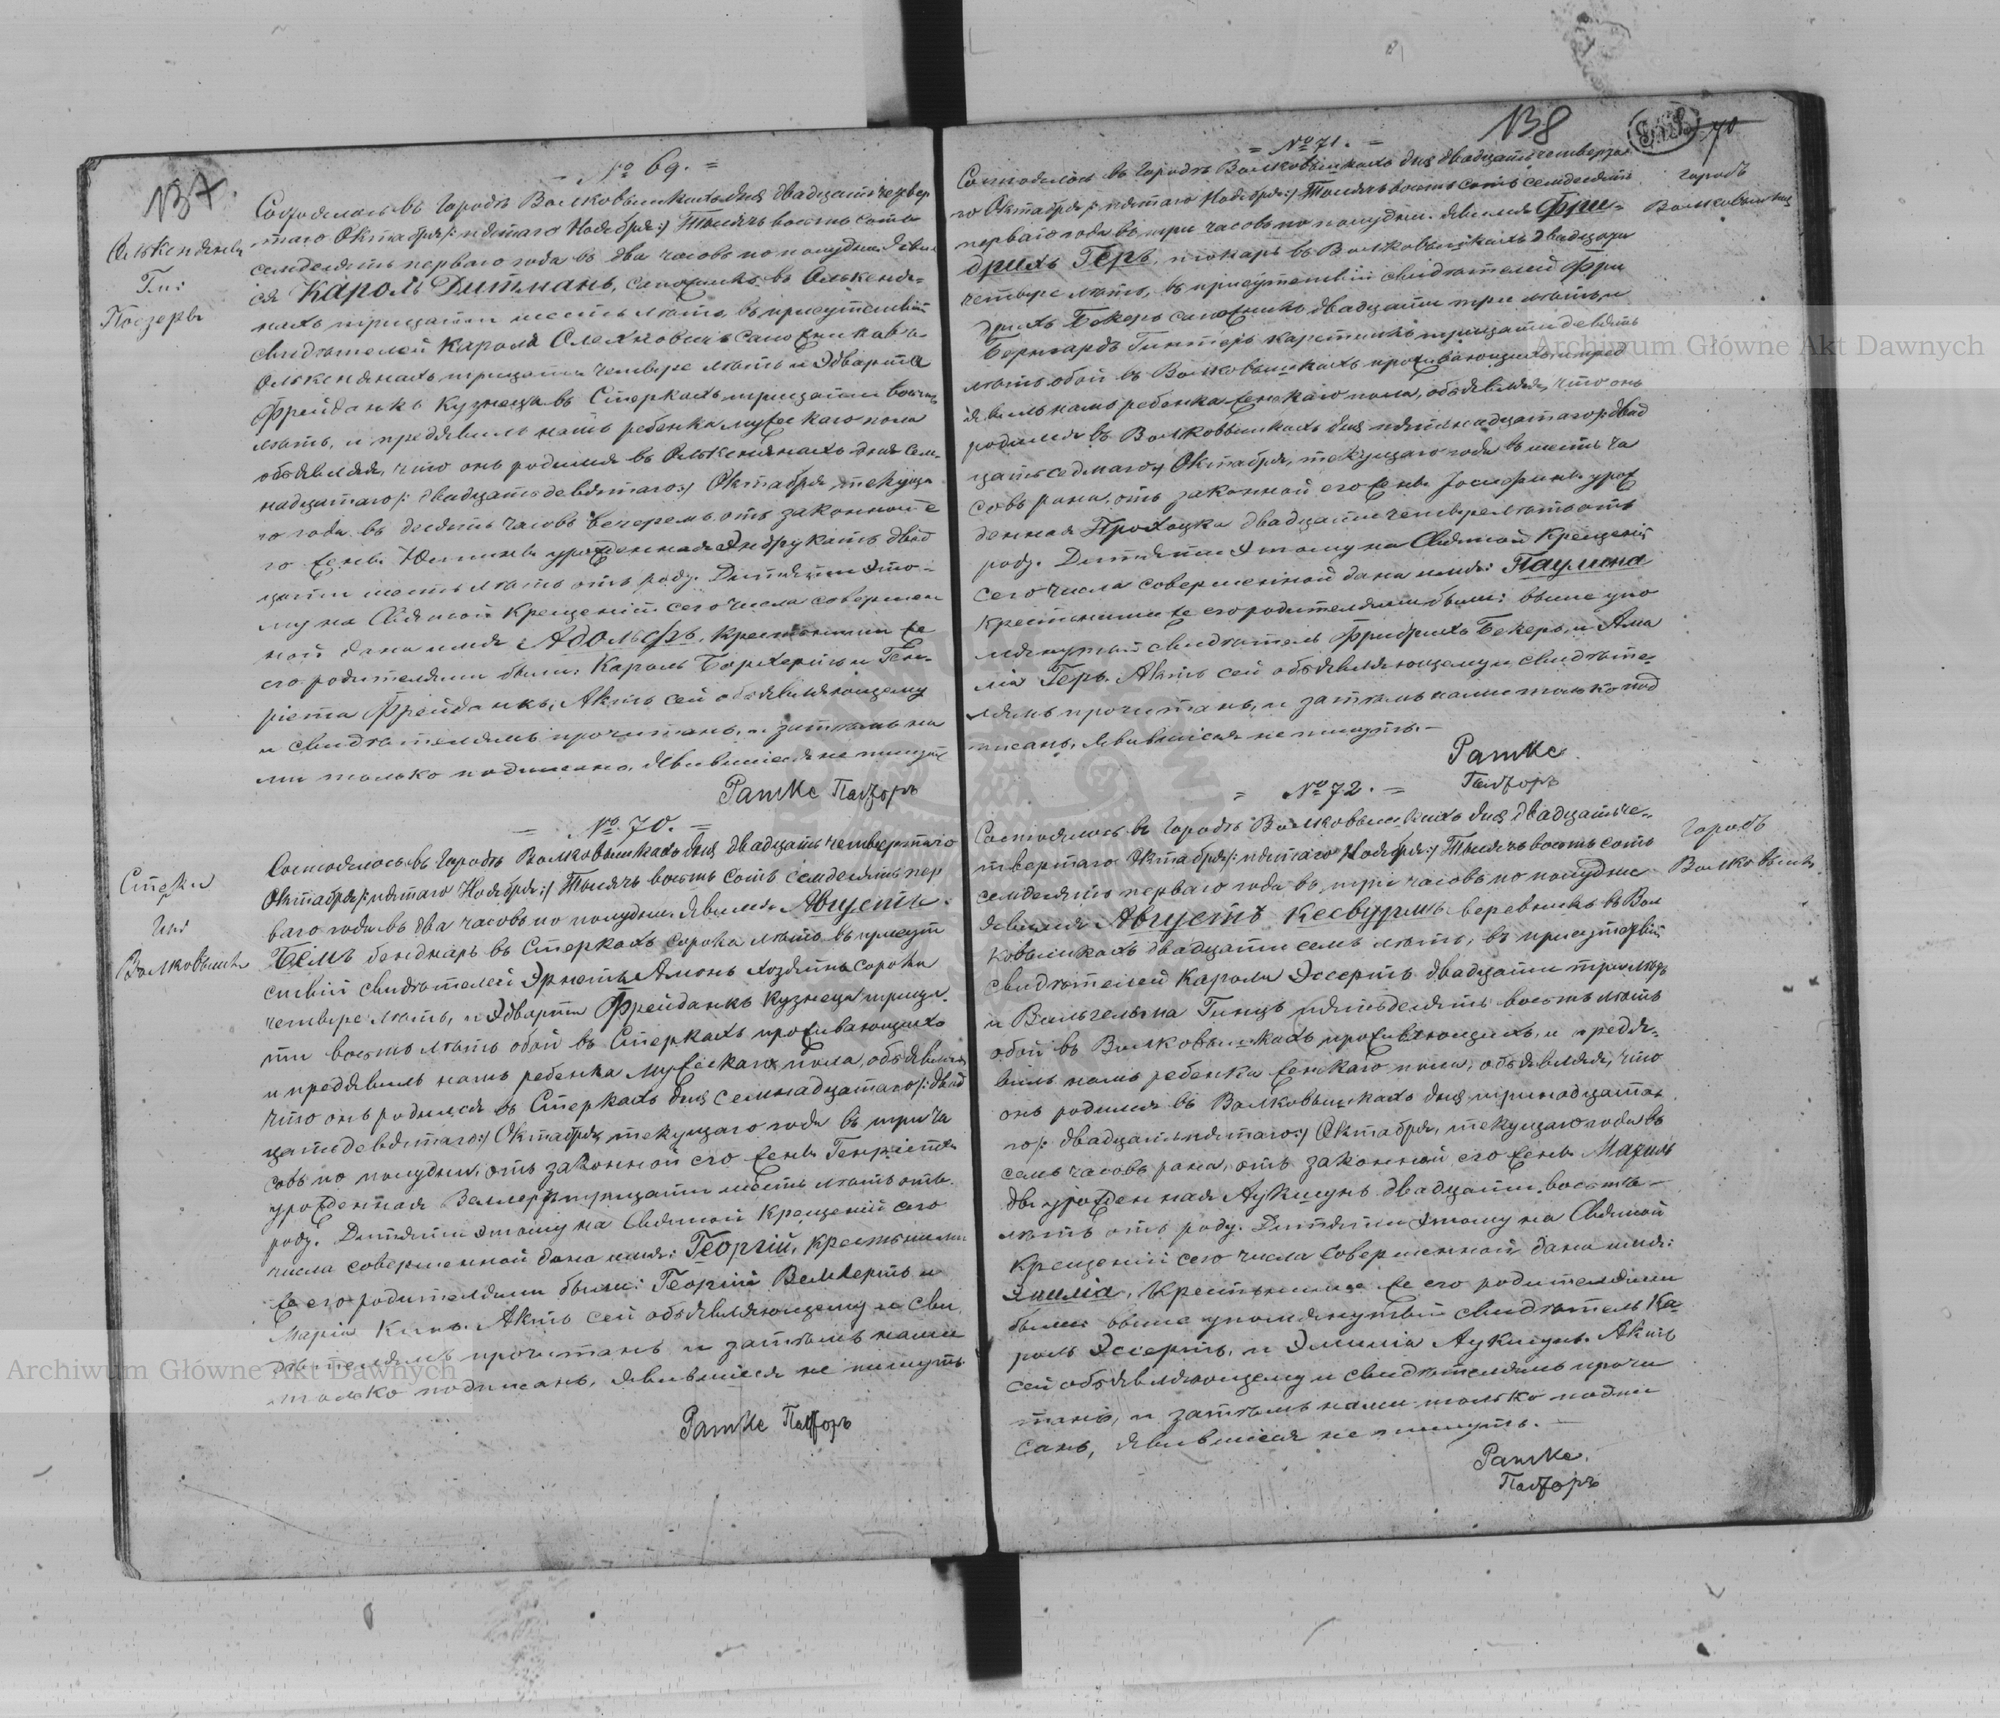 137.
№ 69.
Олькеняны
Гми:
Поезеры
Состоялось въ Городѣ Волковышкахъ дня двадцать четвер
таго Октября /: пятаго Ноября :/ Тысяча восемь сотъ
семдесятъ перваго года въ два часовъ по полудни. Явил
ся Кароль Дитманъ, сапожникъ въ Олькеня-
нахъ тридцати шесть лѣтъ въ присутствіи
свидѣтелей Кароля Олехновичъ сапожника въ
Олькенянахъ тридцати четвере лѣтъ и Эдварта
Фрейданкъ Кузнеца въ Стеркахъ тридцати восемь
лѣтъ, и предъявилъ намъ ребенка мужескаго пола
объявляя, что онъ родился въ Олькенянахъ дня сем-
надцатаго /: двадцать девятаго :/ Октября, текуща
го года въ десять часовъ вечеромъ отъ законной е
го жены Юстины урожденная Эндрукатъ двад
цати шесть лѣтъ отъ роду. Дитяти это-
му на Святой Крещеніи сего числа совершен
ной дано имя Адольфъ, крестными же
его родителями были: Кароль Борхертъ и Ген-
ріета Фрейданкъ, Актъ сей объявляющему
и свидѣтелямъ прочитанъ, и затѣмъ на
ми только подписано, Явившіеся не пишутъ
Ратке Пасторъ
№ 70.
Стерки
Гми
Волковышки
Состоялось въ Городѣ Волковышкахъ дня двадцать четвертаго
Октября /: пятаго Ноября :/ Тысяча восемь сотъ семдесятъ пер
ваго года въ два часовъ по полудни. Явился Августъ
Бемъ бенднарь въ Стеркахъ сорока лѣтъ въ присут
ствіи свидѣтелей Эрнстъ Амонъ хозяинъ сорока
четвере лѣтъ, и Эдварта Фрейданкъ Кузнеца тридца
ти восемь лѣтъ обой въ Стеркахъ проживающихъ
и предъявилъ намъ ребенка мужескаго пола, объявляя
что онъ родился въ Стеркахъ дня семнадцатаго /: двад
цать девятаго :/ Октября, текущаго года въ три ча
совъ по полудни, отъ законной его жены Генріетѣ
урожденная тридцати шесть лѣтъ отъ
роду. Дитяти этому на Святой Крещеніи сего
числа совершенной дано имя: Георгій, крестными
же его родителями были: Георгій Веккертъ и
Марія Кинъ. Актъ сей объявляющему и сви
дѣтелямъ прочитанъ и затѣмъ нами
только подписанъ, Явившіеся не пишутъ
Ратке Пасторъ
138
70
№ 71.
Городъ
Волковышки
Состоялось въ Городѣ Волковышкахъ дня двадцать четверта
го Октября /: пятаго Ноября :/ Тысяча восемь сотъ семдесятъ
перваго года въ три часовъ по полудни. Явился Фри-
дрихъ Геръ, пекарь въ Волковышкахъ двадцати
четвере лѣтъ, въ присутствіи свидѣтелей Фри
дрихъ Бекеръ сапожникъ двадцати три лѣтъ и
Бернгардъ Гинтеръ тридцати девять
лѣтъ обой въ Волковышкахъ проживающихъ и пред
явилъ намъ ребенка женскаго пола, объявляя, что онъ
родился въ Волковышкахъ дня пятьнадцатаго /: двад
цать седмаго :/ Октября, текущаго года, въ шесть ча
совъ рана, отъ законной его жены Іозефины урож
денная двадцати четвере лѣтъ отъ
роду. Дитяти этому на Святой Крещеніи
сего числа совершенной дано имя: Паулина
крестными же его родителями были: выше упо
мянутый свидѣтель Фридрихъ Бекеръ, и Ама
лія Геръ. Актъ сей объявляющему и свидѣте-
лямъ прочитанъ, и затѣмъ нами только под
писанъ, Явившіеся не пишутъ. —
Ратке
Пасторъ
№ 72.
Городъ
Волковышки
Состоялось въ Городѣ Волковышкахъ дня двадцать че-
твертаго Октября /: пятаго Ноября :/ Тысяча восемь сотъ
семдесятъ перваго года въ три часовъ по полудни
Явился Августъ Кесвурмъ веревникъ въ Вол
ковышкахъ двадцати семь лѣтъ, въ присутствіи
свидѣтелей Кароля Эссертъ двадцати три лѣтъ
и Вильгельма Гинцъ пятьдесятъ восемь лѣтъ
обой въ Волковышкахъ проживающихъ, и предъя-
вилъ намъ ребенка женскаго пола, объявляя, что
онъ родился въ Волковышкахъ дня тринадцата
го /: двадцать пятаго :/ Октября, текущаго года въ
семь часовъ рана, отъ законной его жены Матиль
ды урожденная Аукшунъ двадцати восемь
лѣтъ отъ роду. Дитяти этому на Святой
Крещеніи сего числа совершенной дано имя:
Эмилія, Крестными же его родителями
были: выше упомянутый свидѣтель Ка
роль Эссертъ, и Эмилія Аукшунъ. Актъ
сей объявляющему и свидѣтелямъ прочи
танъ, и затѣмъ нами только подпи
санъ, Явившіеся не пишутъ. —
Ратке.
Пасторъ
Archiwum Główne Akt Dawnych
Archiwum Główne Akt Dawnych